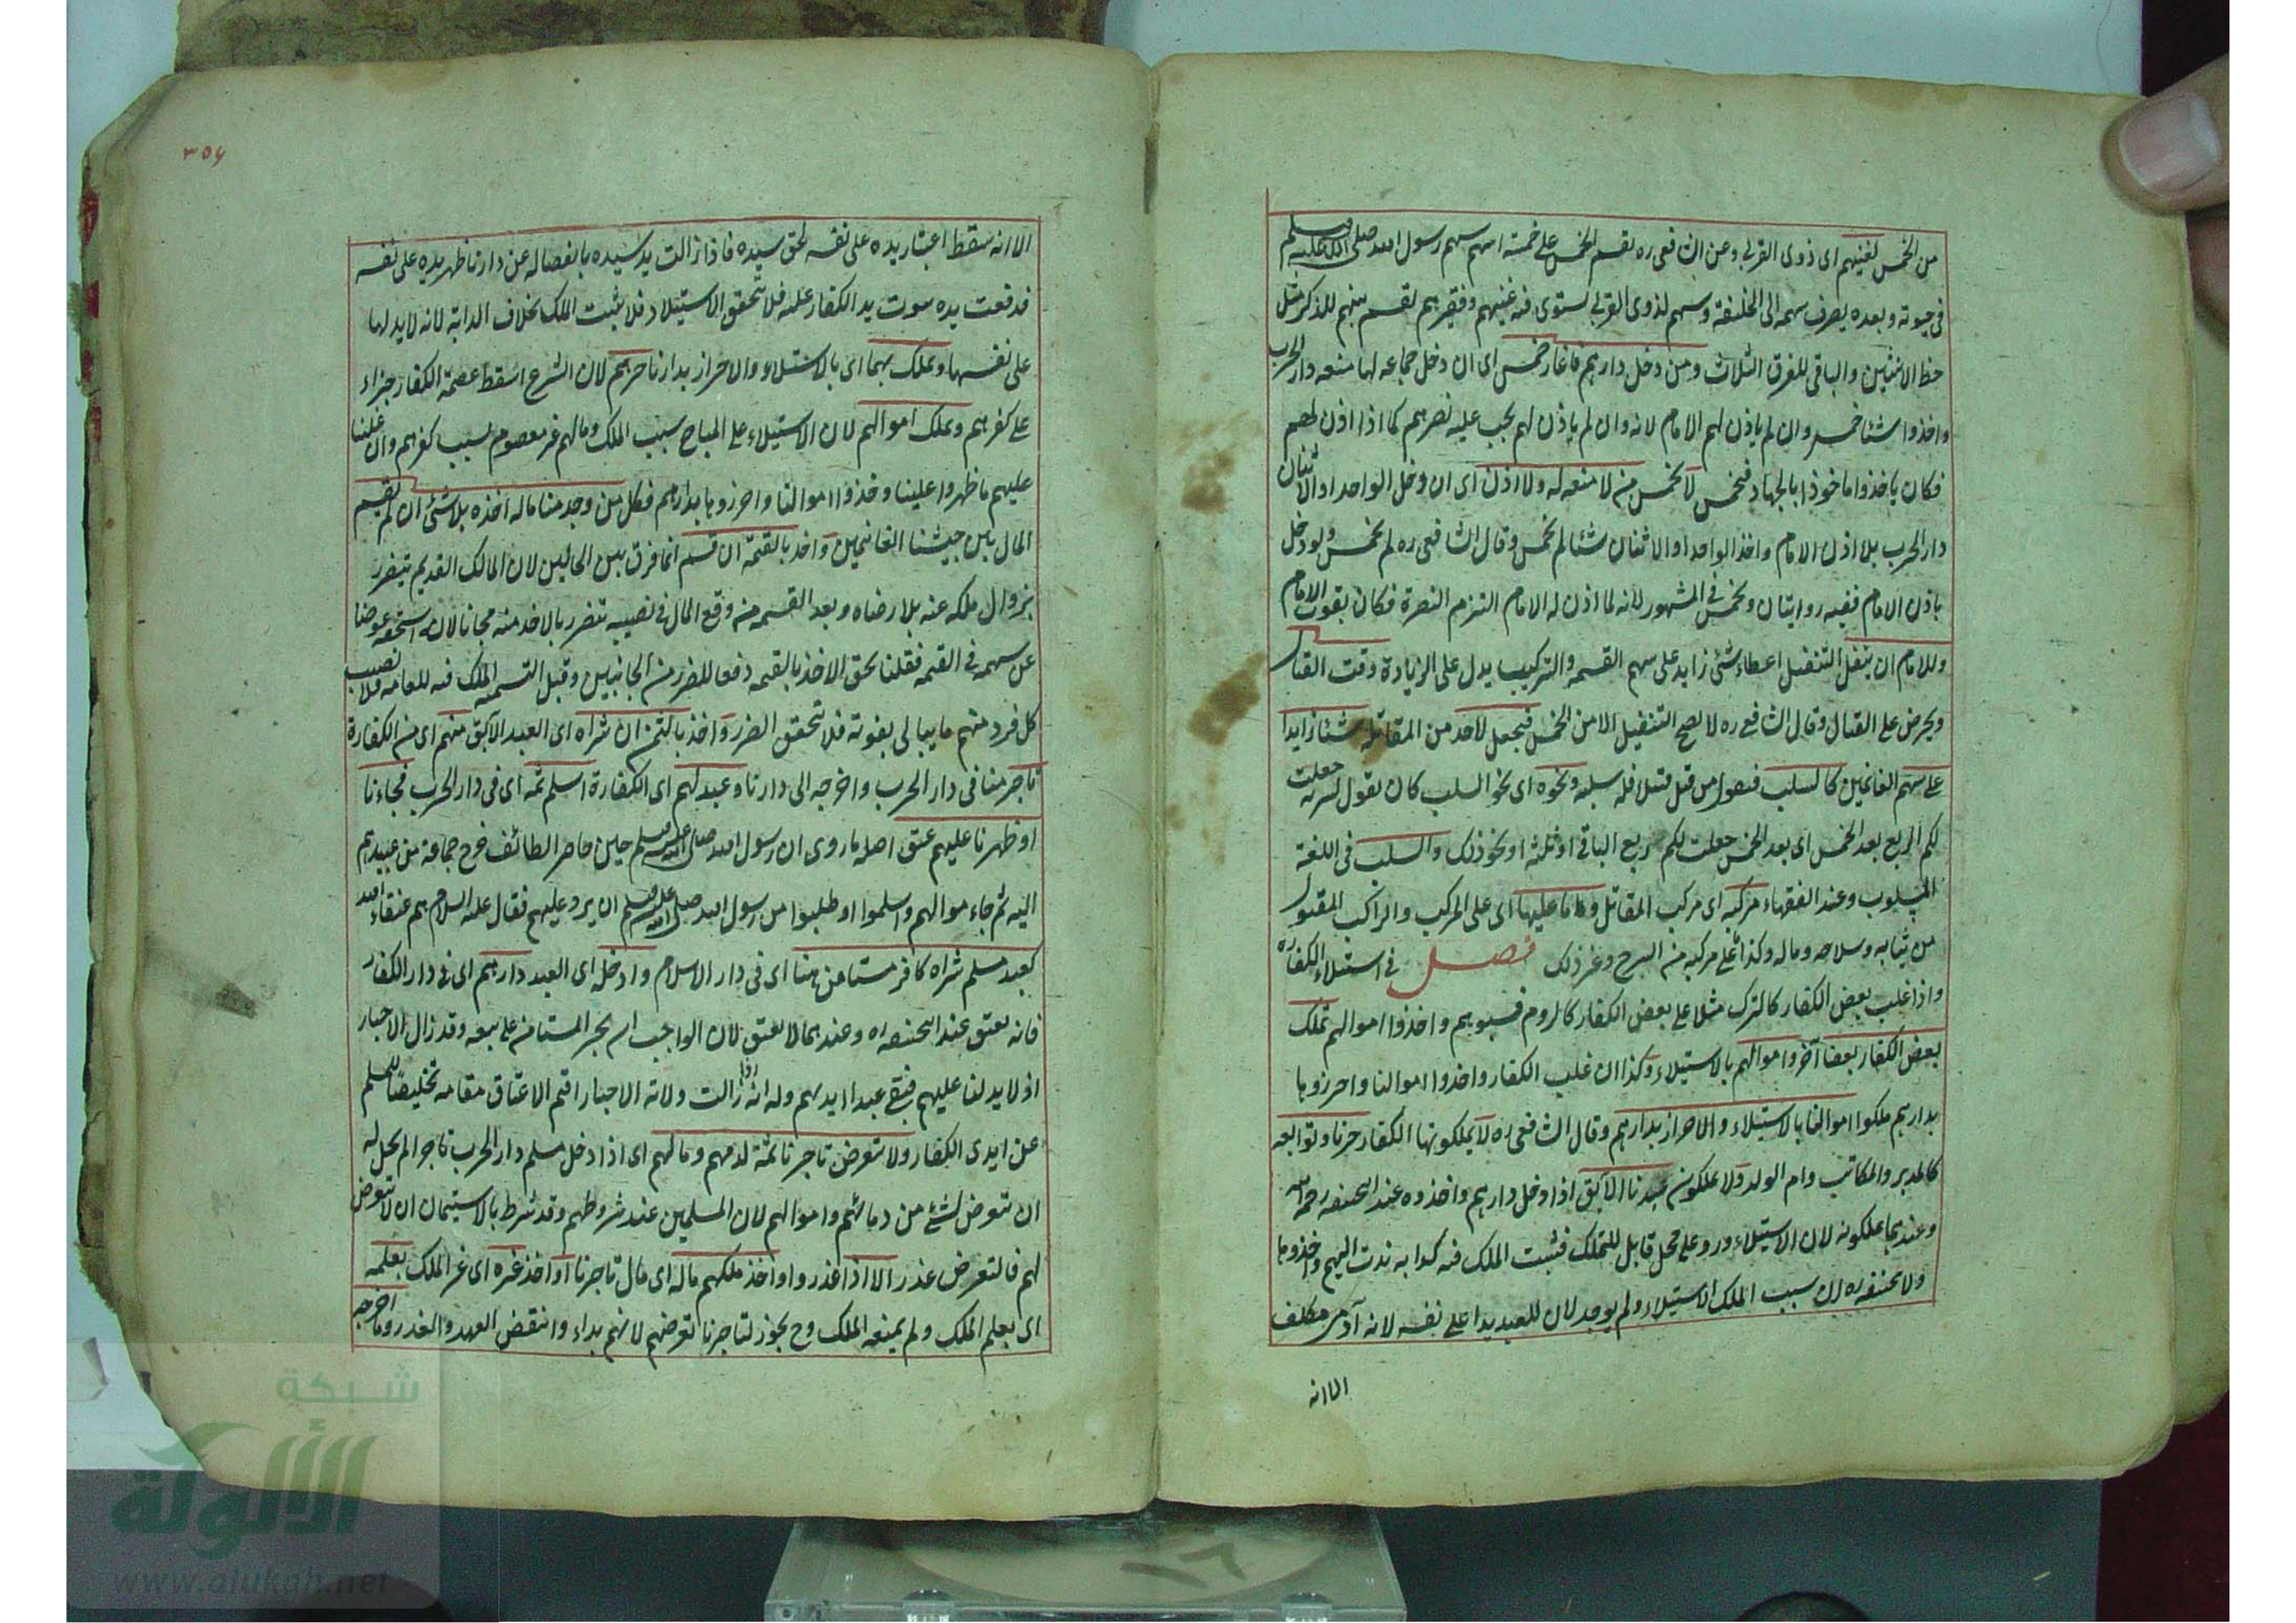 من الخمس لغنيهم اى ذوى القربى وعن الشافعى ره يقسم الخمس على خمسة اسهم سهم رسول الله صلى الله عليه وسلم
فى حيوته وبعده يصرف سهمه الى الخليفة وسهم لذوى القربى يستوى فيه غنيهم وفقيرهم يقسم بينهم للذكر مثل
حظ الانثيين والباقى للفرق الثلاث ومن دخل دارهم فاغار خمس اى ان دخل جماعه لها منعه دار الحرب
واخذوا شيئا خمس وان لم ياذن لهم الامام لانه وان لم ياذن لهم يجب عليه نصرهم كما اذا اذن لهم
فكان ياخذوا ماخوذا بالجهاد فيخمس لا يخمس من لا منعه له ولا اذن اى ان دخل الواحد او الاثنان
دار الحرب بلا اذن الامام واخذ الواحد او الاثنان شيئا لم يخمس وقال الشافعى ره لم يخمس ولو دخل
باذن الامام ففيه روايتان ويخمس فى المشهور لانه لما اذن له الامام التزم النصرة فكان بقوت الامام
وللامام ان ينفل التنفيل اعطاء شئ زايد على سهم القسمه والتركيب يدل على الزيادة وقت القتال
ويحرض على القتال وقال الشافعى ره لا يصح التنفيل الا من الخمس فيجعل لاحد من المقاتلة شيئا زايدا
على سهم الغانمين كالسلب فيقول من قتل قتيلا فله سلبه ونحوه اى نحو السلب كان يقول لسرية جعلت
لكم الربع بعد الخمس اى بعد الخمس جعلت لكم ربع الباقى او ثلثه او نحو ذلك والسلب فى اللغة
المسلوب وعند الفقهاء مركبه اى مركب المقاتل وما عليها اى على المركب والراكب المقتول
من ثيابه وسلاحه وماله وكذا على مركبه من السرج وغير ذلك فصل فى استيلاء الكفاره
واذا غلب بعض الكفار كالترك مثلا على بعض الكفار كالروم فسبوهم واخذوا اموالهم تملك
بعض الكفار بعضا آخر واموالهم بالاستيلاء وكذا ان غلب الكفار واخذوا اموالنا واحرزوها
بدارهم ملكوا اموالنا بالاستيلاء والاحراز بدارهم وقال الشافعى ره لا يملكونها الكفار حرنا وتوابعه
كالمدبر والمكاتب وام الولد ولا يملكون عبدنا الآبق اذا دخل دارهم واخذوه عند ابيحنيفه رحمه الله
وعندهما يملكونه لان الاستيلاء ورد على محل قابل للتملك فيثبت الملك فيه كدابه ندت اليهم واخذوها
ولابيحنيفه ره ان سبب الملك الاستيلاء ولم يوجد لان للعبد يدا على نفسه لانه آدمى مكلف
الا انه
٣٥٦
الا انه سقط اعتبار يده على نفسه لحق سيده فاذا زالت يد سيده بانفصاله عن دارنا ظهر يده على نفسه
فدفعت يده ثبوت يد الكفار عليه فلا يتحقق الاستيلاء فلا يثبت الملك بخلاف الدابة لانه لا يد لها
على نفسها ويملك بهما اى بالاستيلاء والاحراز بدارنا حرهم لان الشرع اسقط عصمة الكفار جزاء
على كفرهم ويملك اموالهم لان الاستيلاء على المباح سبب الملك ومالهم غير معصوم بسبب كفرهم وان غلبنا
عليهم ما ظهروا علينا وخذوا اموالنا واحرزوها بدارهم فكل من وجد منا ماله اخذه بلا شئ ان لم يقسم
المال بين جيشنا الغانمين واخذ بالقيمة ان قسم انما فرق بين الحالين لان المالك القديم يتضرر
بزوال ملكه عنه بلا رضاه وبعد القسمه من وقع المال فى نصيبه يتضرر بالاخذ منه مجانا لانه استحقه عوضا
عن سهمه فى القيمه فقلنا بحق الاخذ بالقيمه دفعا للضرر من الجانبين وقبل القسمة الملك فيه للعامه فلا نصيب
كل فرد منهم ما يبالى بفوته فلا يتحقق الضرر واخذ بالثمن ان شراه اى العبد الآبق منهم اى من الكفارة
تاجر منا فى دار الحرب واخرجه الى دارنا وعبد لهم اى الكفارة اسلم ثمه اى فى دار الحرب فجاءنا
او ظهرنا عليهم عتق اصله ما روى ان رسول الله صلى الله عليه وسلم حين حاصر الطائف خرج جماعة من عبيدهم
اليه ثم جاء مواليهم واسلموا او طلبوا من رسول الله صلى الله عليه وسلم ان يرد عليهم فقال عليه السلام هم عتقاء الله
كعبد مسلم شراه كافر مستامن هنا اى فى دار الاسلام وادخله اى العبد دارهم اى فى دار الكفار
فانه يعتق عند ابيحنيفه ره وعندهما لا يعتق لان الواجب ان يجبر المستامن على بيعه وقد زال الاجبار
اذ لا يد لنا عليهم فبقى عبدا ايديهم وله انه اذا زالت ولاية الاجبار اقيم الاعتاق مقامه تخليصا للمسلم
عن ايدى الكفار ولا يتعرض تاجرنا ثمة لدمهم ومالهم اى اذا دخل مسلم دار الحرب تاجرا لم يحل له
ان يتعرض لشئ من دمائهم واموالهم لان المسلمين عند شروطهم وقد شرط بالاستيمان ان لا يتعرض
لهم فالتعرض غدر الا اذا غدروا واخذ ملكهم ماله اى مال تاجرنا او اخذ غيره اى غير الملك بعلمه
اى بعلم الملك ولم يمنعه الملك وح يجوز لتاجرنا تعرضهم لانهم بداء وانتقض العهد والغدر وما اخرجه
شبكة
الألوكة
www.alukah.net